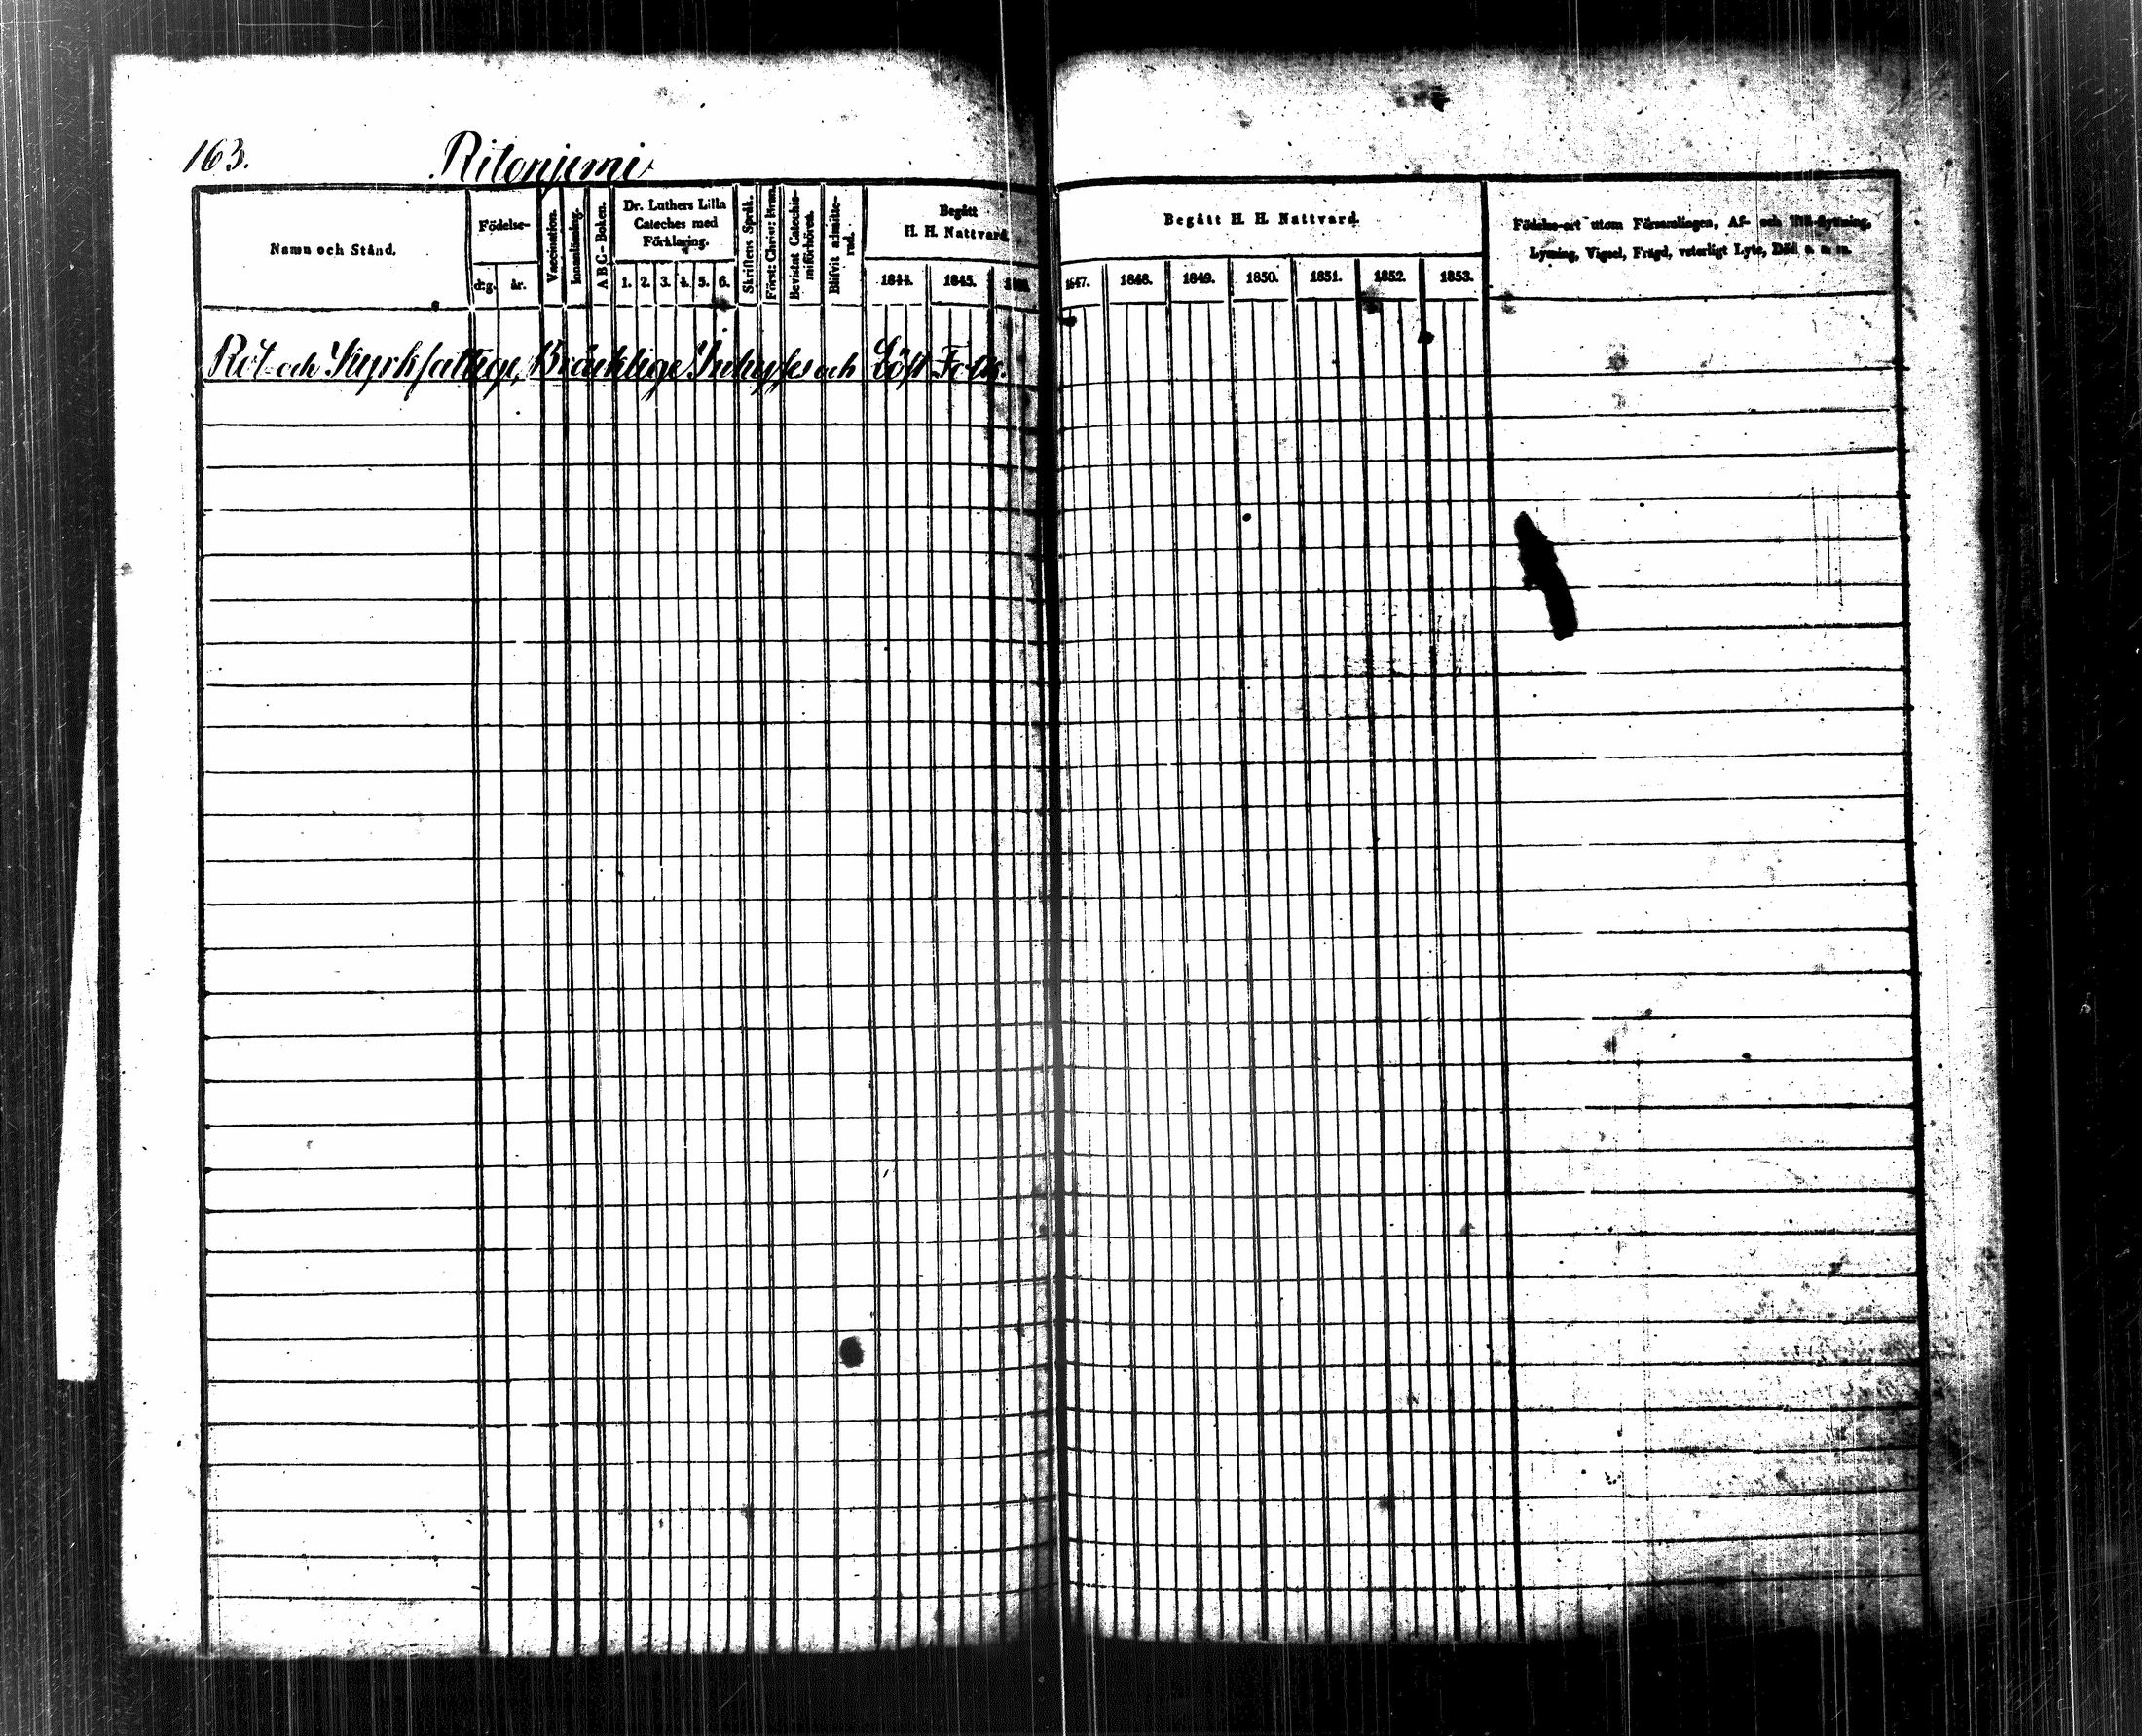 163. Ritoniemi
Namn och Stånd.
Födelse-
dag.
år.
Vaccination.
Innanläsning.
A B C-Boken.
Dr. Luthers Lilla
Cateches med
Förklaring.
1. 2. 3. 4. 5. 6.
Skriftens Språk.
Först: Christ: kun.
Bevistat Catechis-
miförhören.
Blifvit admitte-
rad.
Begått
H. H. Nattvard.
1844. 1845.
Begått H. H. Nattvard.
1847. 1848. 1849. 1850. 1851. 1852. 1853.
Födelse-ort utom Församlingen, Af- och Till-flyttning,
Lysning, Vigsel, Frägd, veterligt Lyte, Död o. s. m.
Rot- och Kyrkfattige, Bräcklige Inhyses och Löst Folk.